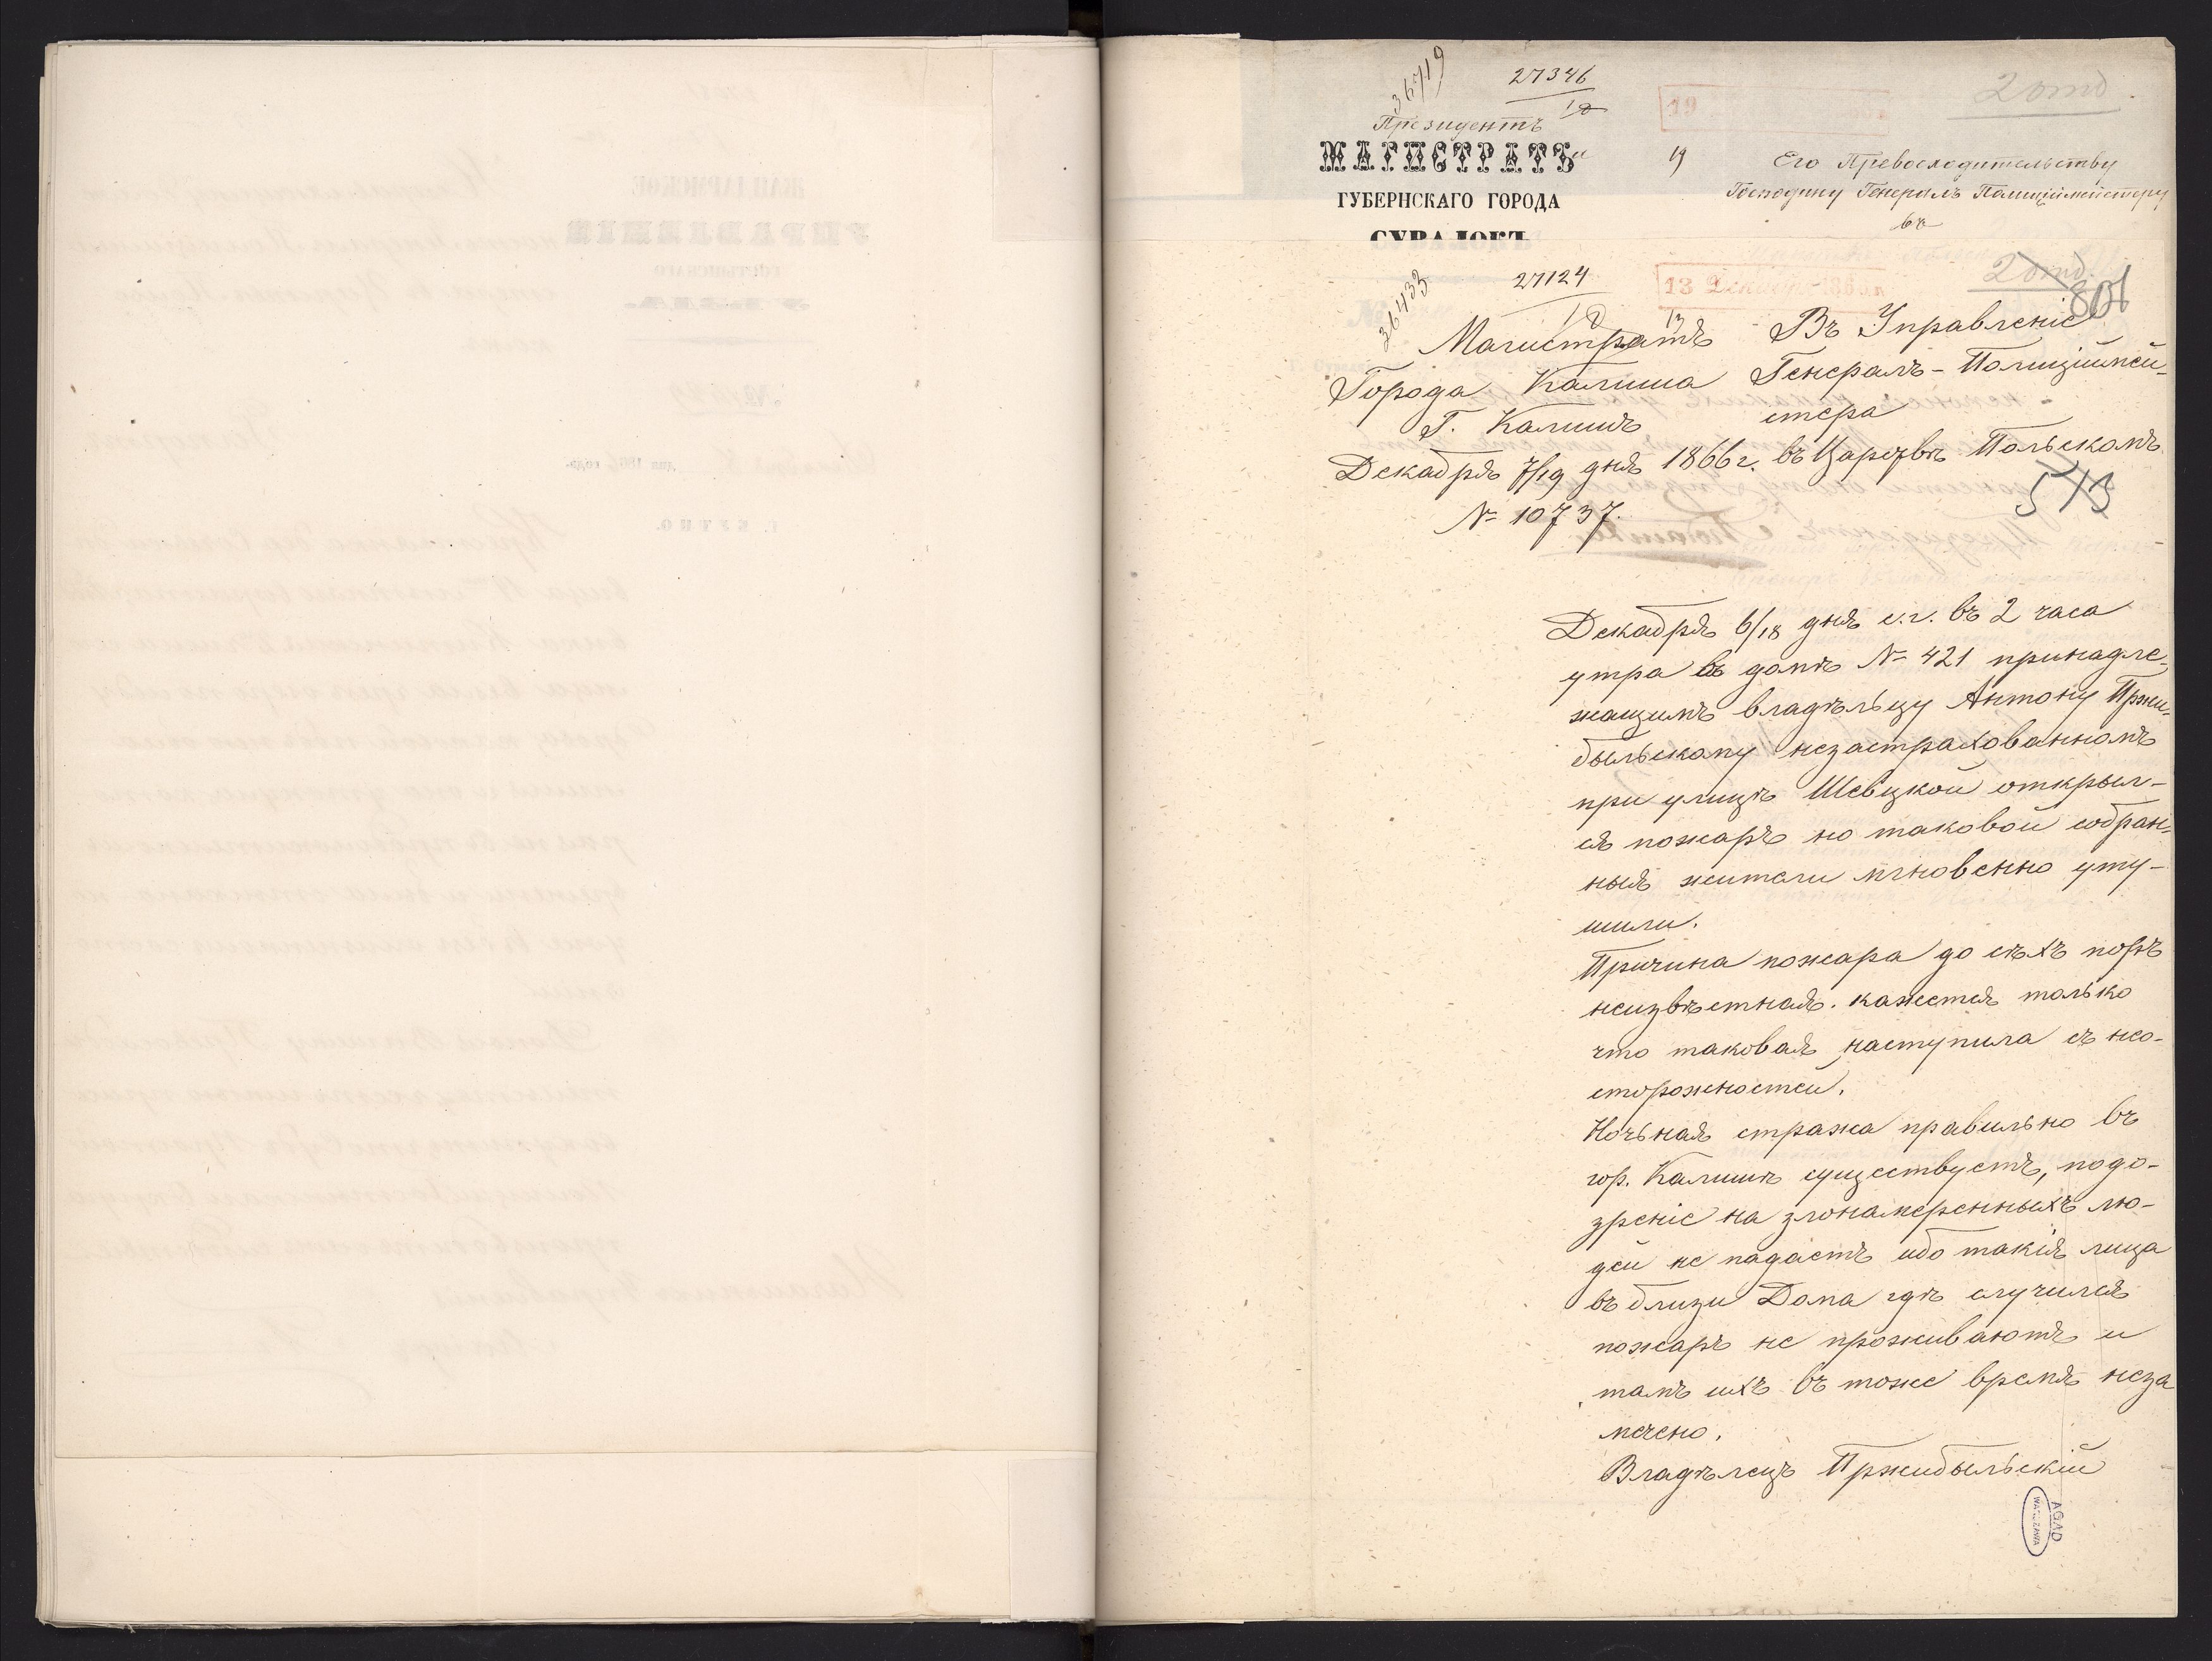 36719
27346
12
Президентъ
МАГИСТРАТЪ
ГУБЕРНСКАГО ГОРОДА
СУВАЛОКЪ
19
19
2 отд.
Его Превосходительству
Господину Генералъ Полицiймейстеру
въ
36433
27124
12
13 Декабря 186
13
2 отд.
801
Магистратъ
Города Калиша
Г. Калишъ
Декабря 7/19 дня 1866 г.
№ 10737.
Въ Управленіе
Генералъ-Полиціймей-
стера
въ Царствѣ Польскомъ
513
Декабря 6/18 дня с.г. въ 2 часа
утра въ домѣ № 421 принадле-
жащимъ владѣльцу Антону Пржи-
быльскому незастрахованномъ
при улицѣ Шевцкой открыл-
ся пожаръ но таковой собран-
ныя жители мгновенно уту-
шили.
Причина пожара до сѣхъ поръ
неизвѣстная. кажется только
что таковая наступила съ нео-
сторожностей.
Ночьная стража правильно въ
гор. Калишѣ существуетъ, подо-
зреніе на злонамеренныхъ лю-
дей не падаетъ ибо такія лица
въ близи Дома гдѣ случился
пожаръ не проживаютъ и
тамъ ихъ въ тоже время неза
мечено.
Владѣлецъ Пржибыльскій
AGAD
WARSZAWA